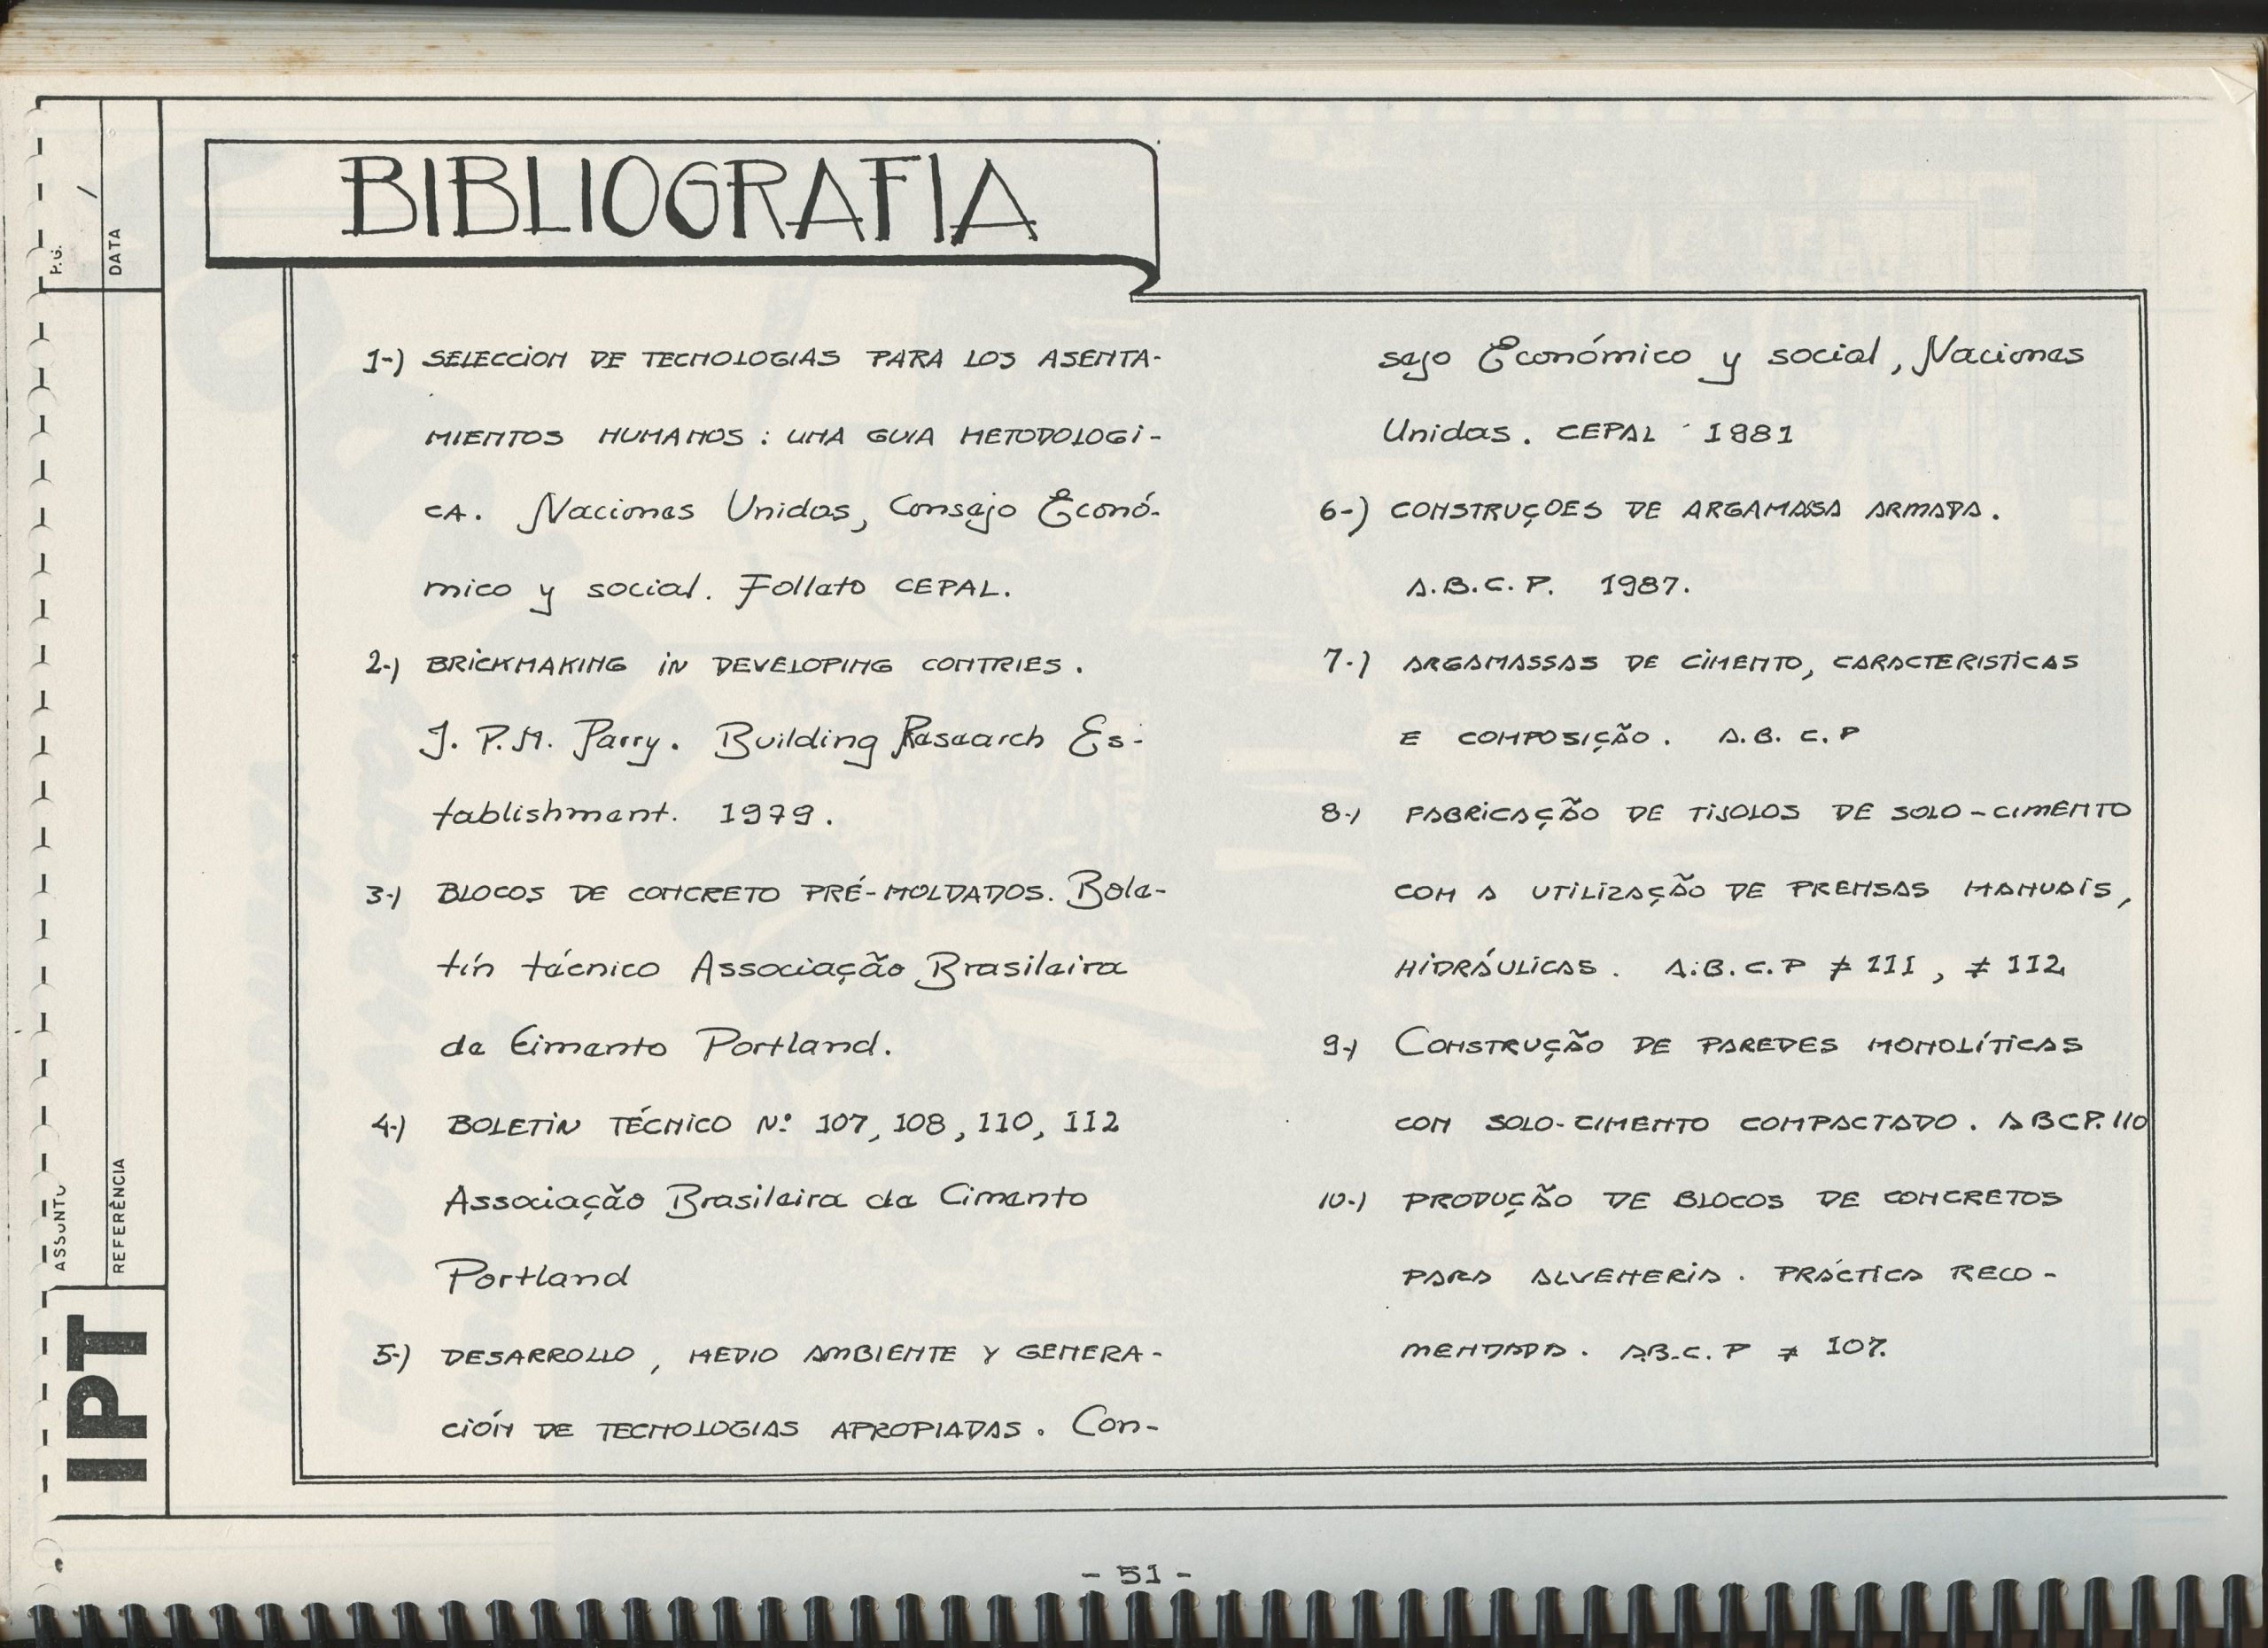 BIBLIOGRAFIA
1-) SELECCION DE TECNOLOGIAS PARA LOS ASENTA-
MIENTOS HUMANOS : UNA GUIA METODOLOGI-
CA. Naciones Unidas, Consejo Econó-
mico y social. Folleto CEPAL.
2-) BRICKMAKING IN DEVELOPING CONTRIES.
J. P. M. Parry. Building Research Es-
tablishment. 1979.
3-) BLOCOS DE CONCRETO PRÉ-MOLDADOS. Bole-
tín técnico Associação Brasileira
de Cimento Portland.
4-) BOLETIN TÉCNICO Nº 107, 108, 110, 112
Associação Brasileira de Cimento
Portland
5-) DESARROLLO, MEDIO AMBIENTE Y GENERA-
CIÓN DE TECNOLOGIAS APROPIADAS. Con-
sejo Económico y social, Naciones
Unidas. CEPAL 1981
6-) CONSTRUÇOES DE ARGAMASSA ARMADA.
A.B.C.P. 1987.
7-) ARGAMASSAS DE CIMENTO, CARACTERISTICAS
E COMPOSIÇÃO. A.B.C.P
8-) FABRICAÇÃO DE TIJOLOS DE SOLO-CIMENTO
COM A UTILIZAÇÃO DE PRENSAS MANUAIS,
HIDRÁULICAS. A.B.C.P ≠ 111, ≠ 112
9-) CONSTRUÇÃO DE PAREDES MONOLÍTICAS
COM SOLO-CIMENTO COMPACTADO. ABCP. 110
10-) PRODUÇÃO DE BLOCOS DE CONCRETOS
PARA ALVENERIA. PRÁCTICA RECO-
MENDADA. A.B.C.P ≠ 107.
- 51 -
P.G. /
DATA
ASSUNTO
REFERÊNCIA
IPT